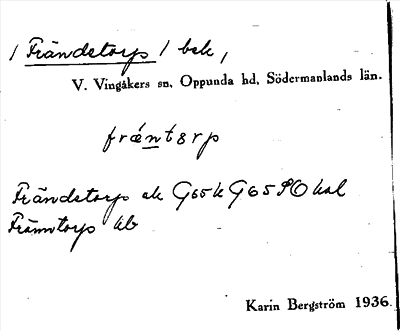 / Frändstorp / bsk,
V. Vingåkers sn, Oppunda hd, Södermanlands län.
fräntɛrp
Frändstorp ek G65k G65 PO kal
Främntorp kb
Karin Bergström 1936.